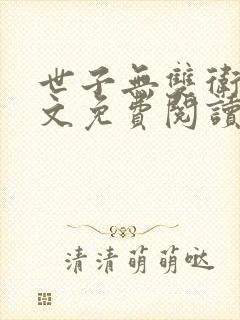 世子無雙衛
文免費閱讀
清清萌萌噠